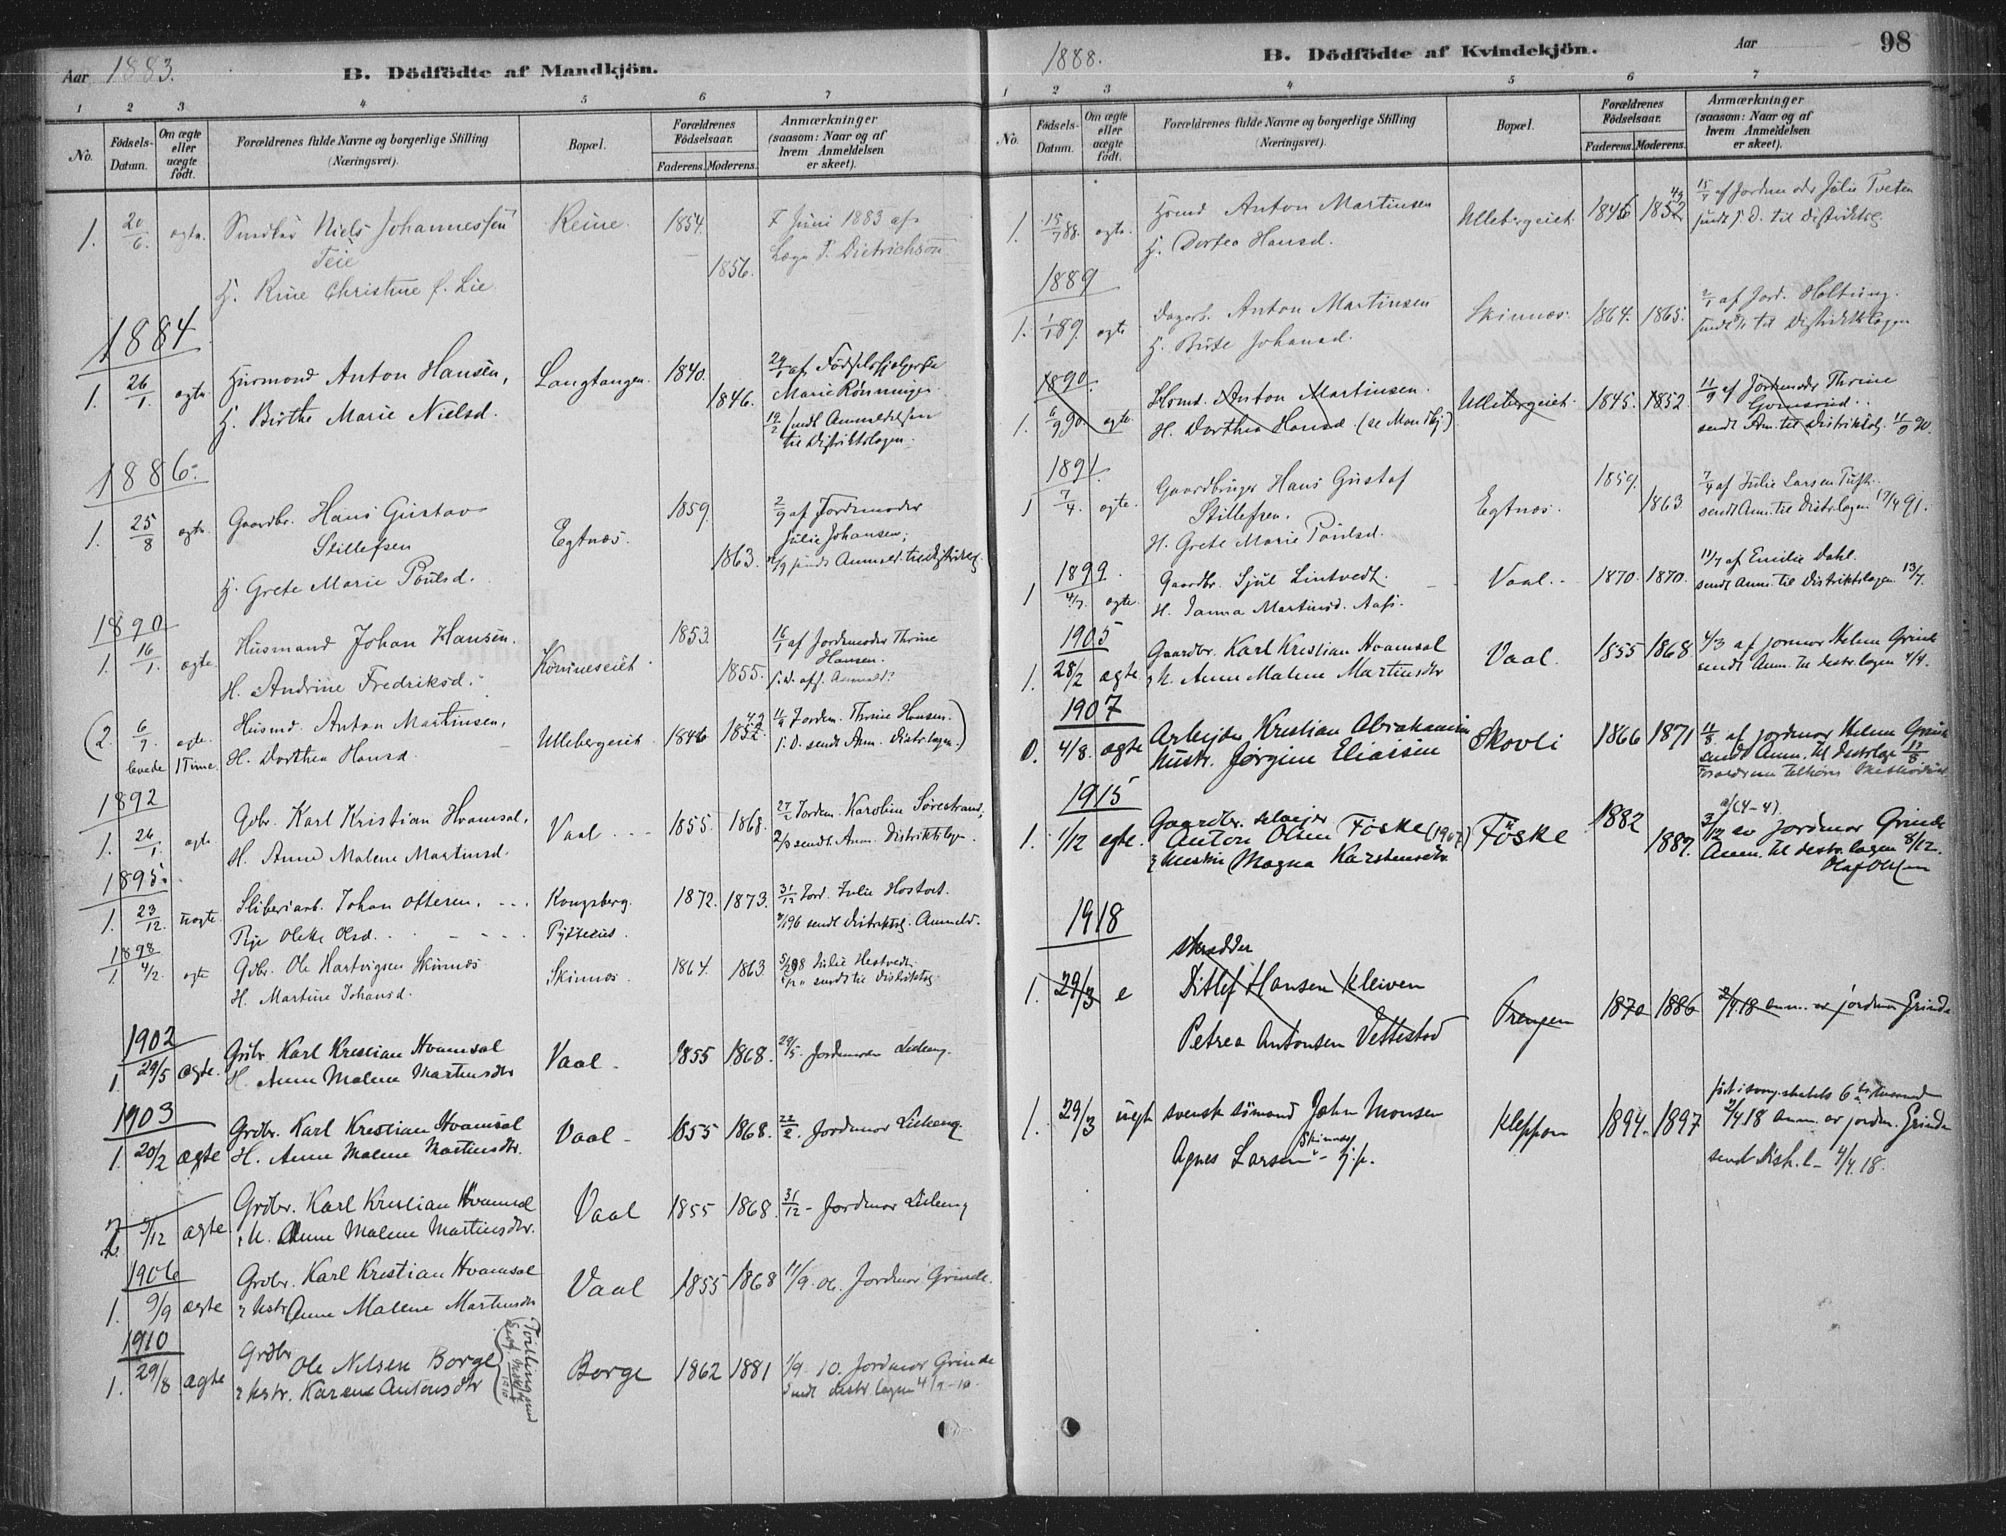 Aar 1883.
B. Dödfödte af Mandkjön.
1 2 3 4 5 6 7
No.
Födsels-Datum.
Om ægte eller uægte födt.
Forældrenes fulde Navne og borgerlige Stilling
(Næringsvei).
Bopæl.
Forældrenes Födselsaar.
Faderens. Moderens.
Anmærkninger
(saasom: Naar og af
hvem Anmeldelsen
er skeet).
1. 20/6. ægte. Niels Johannessen Reine. 1854. 7 Juni 1883 af
Teie 1856. Læge P. Dietrichson
H. Rine Christine f. Lie
1884.
1. 26/1. ægte. Husmand Anton Hansen, Langtangen. 1840. 29/1 af Fødselshjelperske
H. Birthe Marie Nielsd. 1846. Marie Rønningen.
19/2 sendt Anmeldelsen
til Distriktslægen.
1886.
1. 25/8 ægte. Gaardbr. Hans Gustav Egtnæs. 1859. 2/9 af Jordemoder
Stillefsen 1863. Julie Johansen;
sendt Anmeld. til Distriktsl.
H. Grete Marie Poulsd.
1890
1. 16/1. ægte. Husmand Johan Hansen. 1853. 16/1 af Jordemoder Thrine
H. Andrine Fredriksd. 1855. Hansen.
(2. 6/9. ægte. Husmd. Anton Martinsen, Ullebergeiet 1846 1852 42 11/9 Jordem. Thrine Hansen.
levede 1 Time. H. Dorthea Hansd. s. D. sendt Anm. Distr.lægen.)
1892
1. 26/1. ægte Gdbr. Karl Kristian Hvamsal, Vaal 1855. 1868. 27/2 Jordem. Karoline Sørestrand,
H. Anne Malene Martinsd. sendt Anm. Distriktslæge.
1895.
1. 23/12. uægte. Sliberiarb. Johan Ottersen. Kongsberg. 1872. 1873. 31/12 Jord. Julie
Pige Olette Olsd. sendt Distriktsl. Anmeld.
1898
1. 4/2. ægte Gdbr. Ole Hartvigsen Skinnæs Skinnæs 1864. 1863 Julie Hestvedt.
H. Martine Johansd. sendt til Distriktsl.
1902
1. 29/5 ægte. Grdbr. Karl Kristian Hvamsal Vaal 1855 1868. 29/5 Jordemoder Lideng.
H. Anne Malene Martinsdtr
1903
1. 20/2 ægte Grdbr. Karl Kristian Hvamsal Vaal 1855 1868. 22/2. Jordmor Lideng
H. Anne Malene Martinsdtr.
2. 9/12 ægte Grdbr. Karl Kristian Hvamsal Vaal 1855 1868. 31/12 Jordmor Lideng
H. Anne Malene Martinsdtr.
1906
1. 9/9 ægte Grdbr. Karl Kristian Hvamsal Vaal 1855 1868 11/9. 06. Jordmor Grinde.
Hstr. Anne Malene Martinsdtr
1910
1. 29/8 ægte Grdbr Ole Nilsen Borge Borge 1862 1881 1/9. 10. Jordmor Grinde
Hstr. Karens Antonsdtr Sendt distr.lægen 4/9-10.
Tvilling med
1910
1888.
B. Dödfödte af Kvindekjön.
Aar 98
1 2 3 4 5 6 7
No.
Födsels-Datum.
Om ægte eller uægte födt.
Forældrenes fulde Navne og borgerlige Stilling
(Næringsvei).
Bopæl.
Forældrenes Födselsaar.
Faderens. Moderens.
Anmærkninger
(saasom: Naar og af
hvem Anmeldelsen
er skeet).
1. 15/7 88. ægte. Hsmd Anton Martinsen Ullebergeiet 1846 1852 42 15/7 af Jordemoder Julie Tveten
H. Dortea Hansd. sendt s. D. til Distriktsl.
1889
1. 1/1 89. ægte Dagarb. Anton Martinsen Skinnæs. 1864. 1865. 2/1 af Jord. Holtung.
H. Birte Johansd. sendt til Distriktslægen
1890.
1. 6/9 90. ægte. Hsmd. Anton Martinsen. Ullebergeiet 1845. 1852. 11/9 af Jordemoder Thrine
H. Dorthea Hansd. (se Mandkj.) sendt Anm. til Distriktsl. 11/9 90.
1891.
1 7/4. ægte. Gaardbruger Hans Gustaf Egtnæs. 1859. 7/4 af Julie Larsen Tufte.
Stillefsen. 1863. sendt Anm. til Distr.lægen 17/4 91.
H. Grete Marie Poulsd.
1899.
1 4/7. ægte. Gaardbr. Sjul Lintvedt. Vaal. 1870. 1870. 11/7 af Emilie Dahl.
H. Janna Martinsd. Aafs. sendt Anm. til Distriktslægen 13/7.
1905
1. 28/2 ægte Gaardbr. Karl Kristian Hvamsal Vaal. 1855 1868. 4/3 af jormor Helene Grinde
H. Anne Malene Martinsdtr sendt Anm. til distr.lægen 4/4.
1907
0. 4/8. ægte Arbejder Kristian Abrahamsen Skovli 1866 1871 af jordmor Helene Grinde
Hustr. Jørgine Eliassen sendt Anm. til Distrlæge
Forældrene tilhører
1915
1. 1/12 egte. Gaardbr. selveier Föske 1882 (4-4)
Anton Olsen Föske 1887. av jordmor Grinde
Magna Karstensdtr. Anm. til distr. lægen 8/12.
Olaf Olsen
1918
skredder
1. 29/3 e Ditlef Hansen Kleiven Prengen 1870 1886 2/4.18 anm. av jordmor Grinde
Petrea Antonsen Vettestad
1. 29/3 uegt svensk sömand John Monsen Kleppen 1894. 1897 6te maaned
Agnes Larsen Skinnes 2/4 18 anm. av jordm. Grinde
sendt Distr. l - 4/4 18.